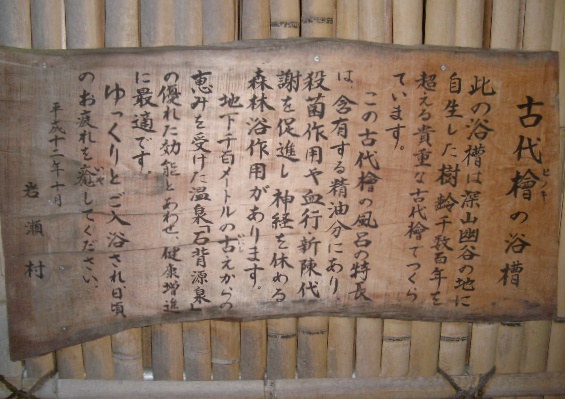 古代檜の浴槽
ヒノキ
此の浴槽は深山幽谷の地に
自生した樹齢千数百年を
超える貴重な古代檜でつくら
れています。
この古代檜の風呂の特長
は、含有する精油分にあり
殺菌作用や血行新陳代
謝を促進し神経を休める
森林浴作用があります。
地下千百メートルの古えからの
恵みを受けた温泉「石背源泉」
の優れた効能とあわせ、健康増進
に最適です。
ゆっくりとご入浴され、日頃
のお疲れを癒してください。
いや
平成十二年十月
岩瀬村